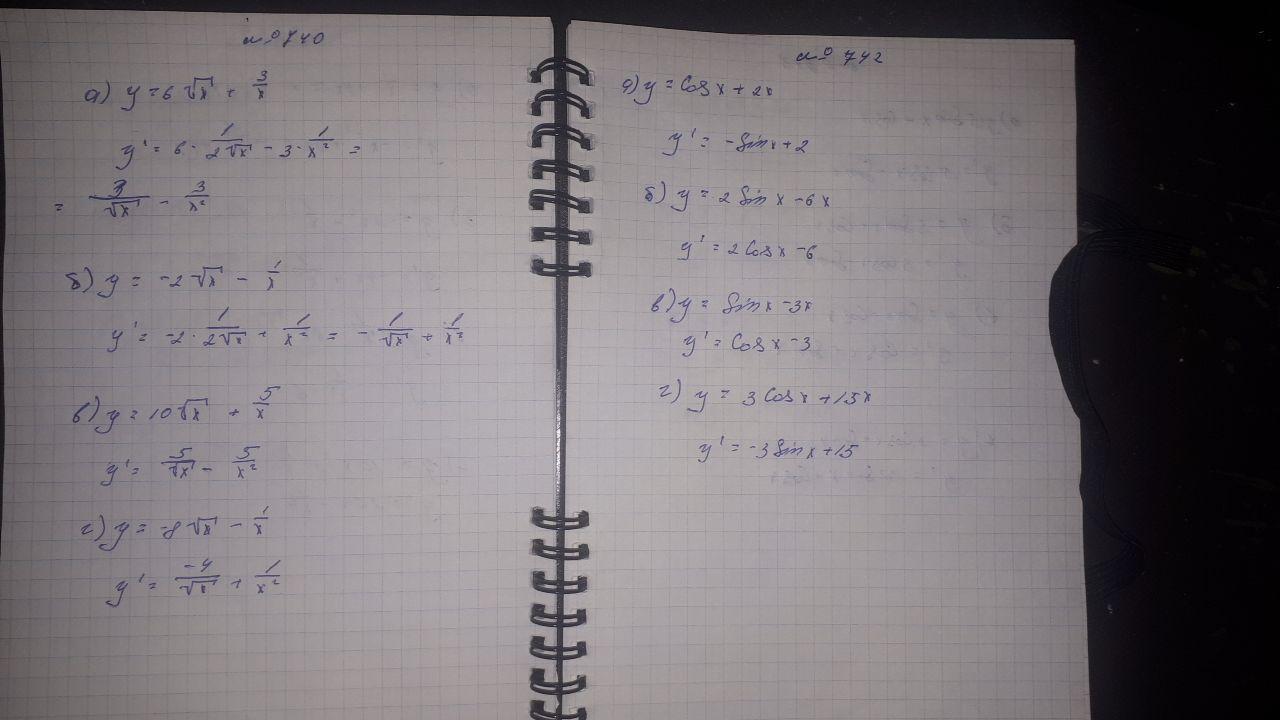 № 740
а) y = 6√x + 3/x
y' = 6 · 1/(2√x) - 3 · 1/x² =
= 3/√x - 3/x²
б) y = -2√x - 1/x
y' = -2 · 1/(2√x) + 1/x² = - 1/√x + 1/x²
в) y = 10√x + 5/x
y' = 5/√x - 5/x²
г) y = -8√x - 1/x
y' = -4/√x + 1/x²
№ 742
а) y = Cos x + 2x
y' = -Sin x + 2
б) y = 2 Sin x - 6x
y' = 2 Cos x - 6
в) y = Sin x - 3x
y' = Cos x - 3
г) y = 3 Cos x + 15x
y' = -3 Sin x + 15